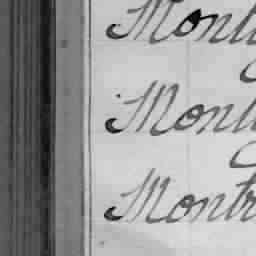 Montg
Montg
Montr